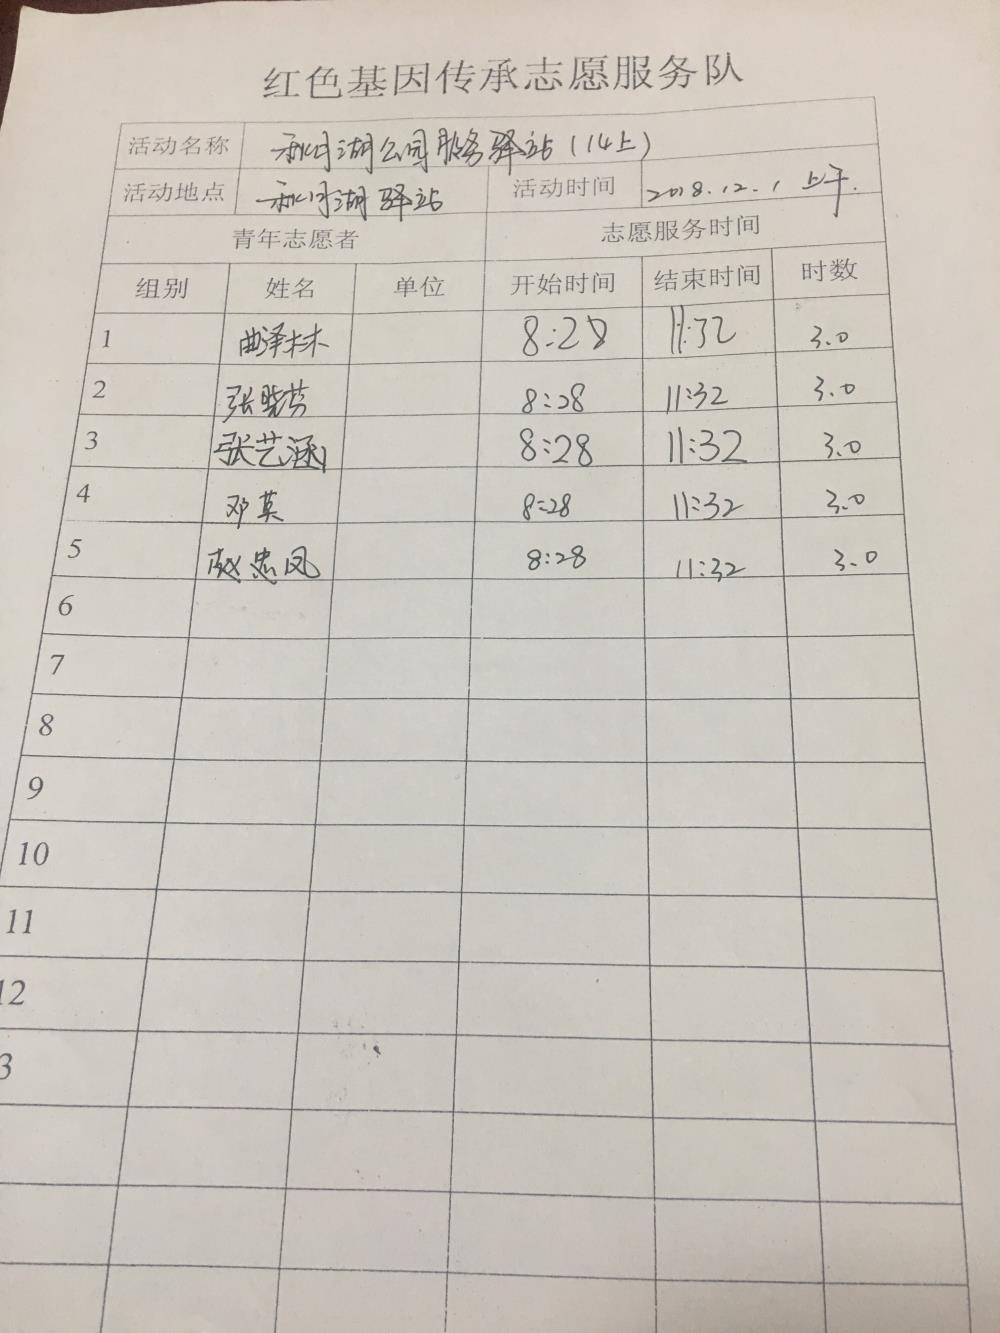 红色基因传承志愿服务队
活动名称 秋月湖公园服务驿站(14上)
活动地点 秋月湖驿站 活动时间 2018.12.1 上午.
青年志愿者 志愿服务时间
组别 姓名 单位 开始时间 结束时间 时数
1 曲泽林 8:28 11:32 3.0
2 张晓芸 8:28 11:32 3.0
3 张艺涵 8:28 11:32 3.0
4 邓英 8:28 11:32 3.0
5 赵忠凤 8:28 11:32 3.0
6
7
8
9
10
11
12
3